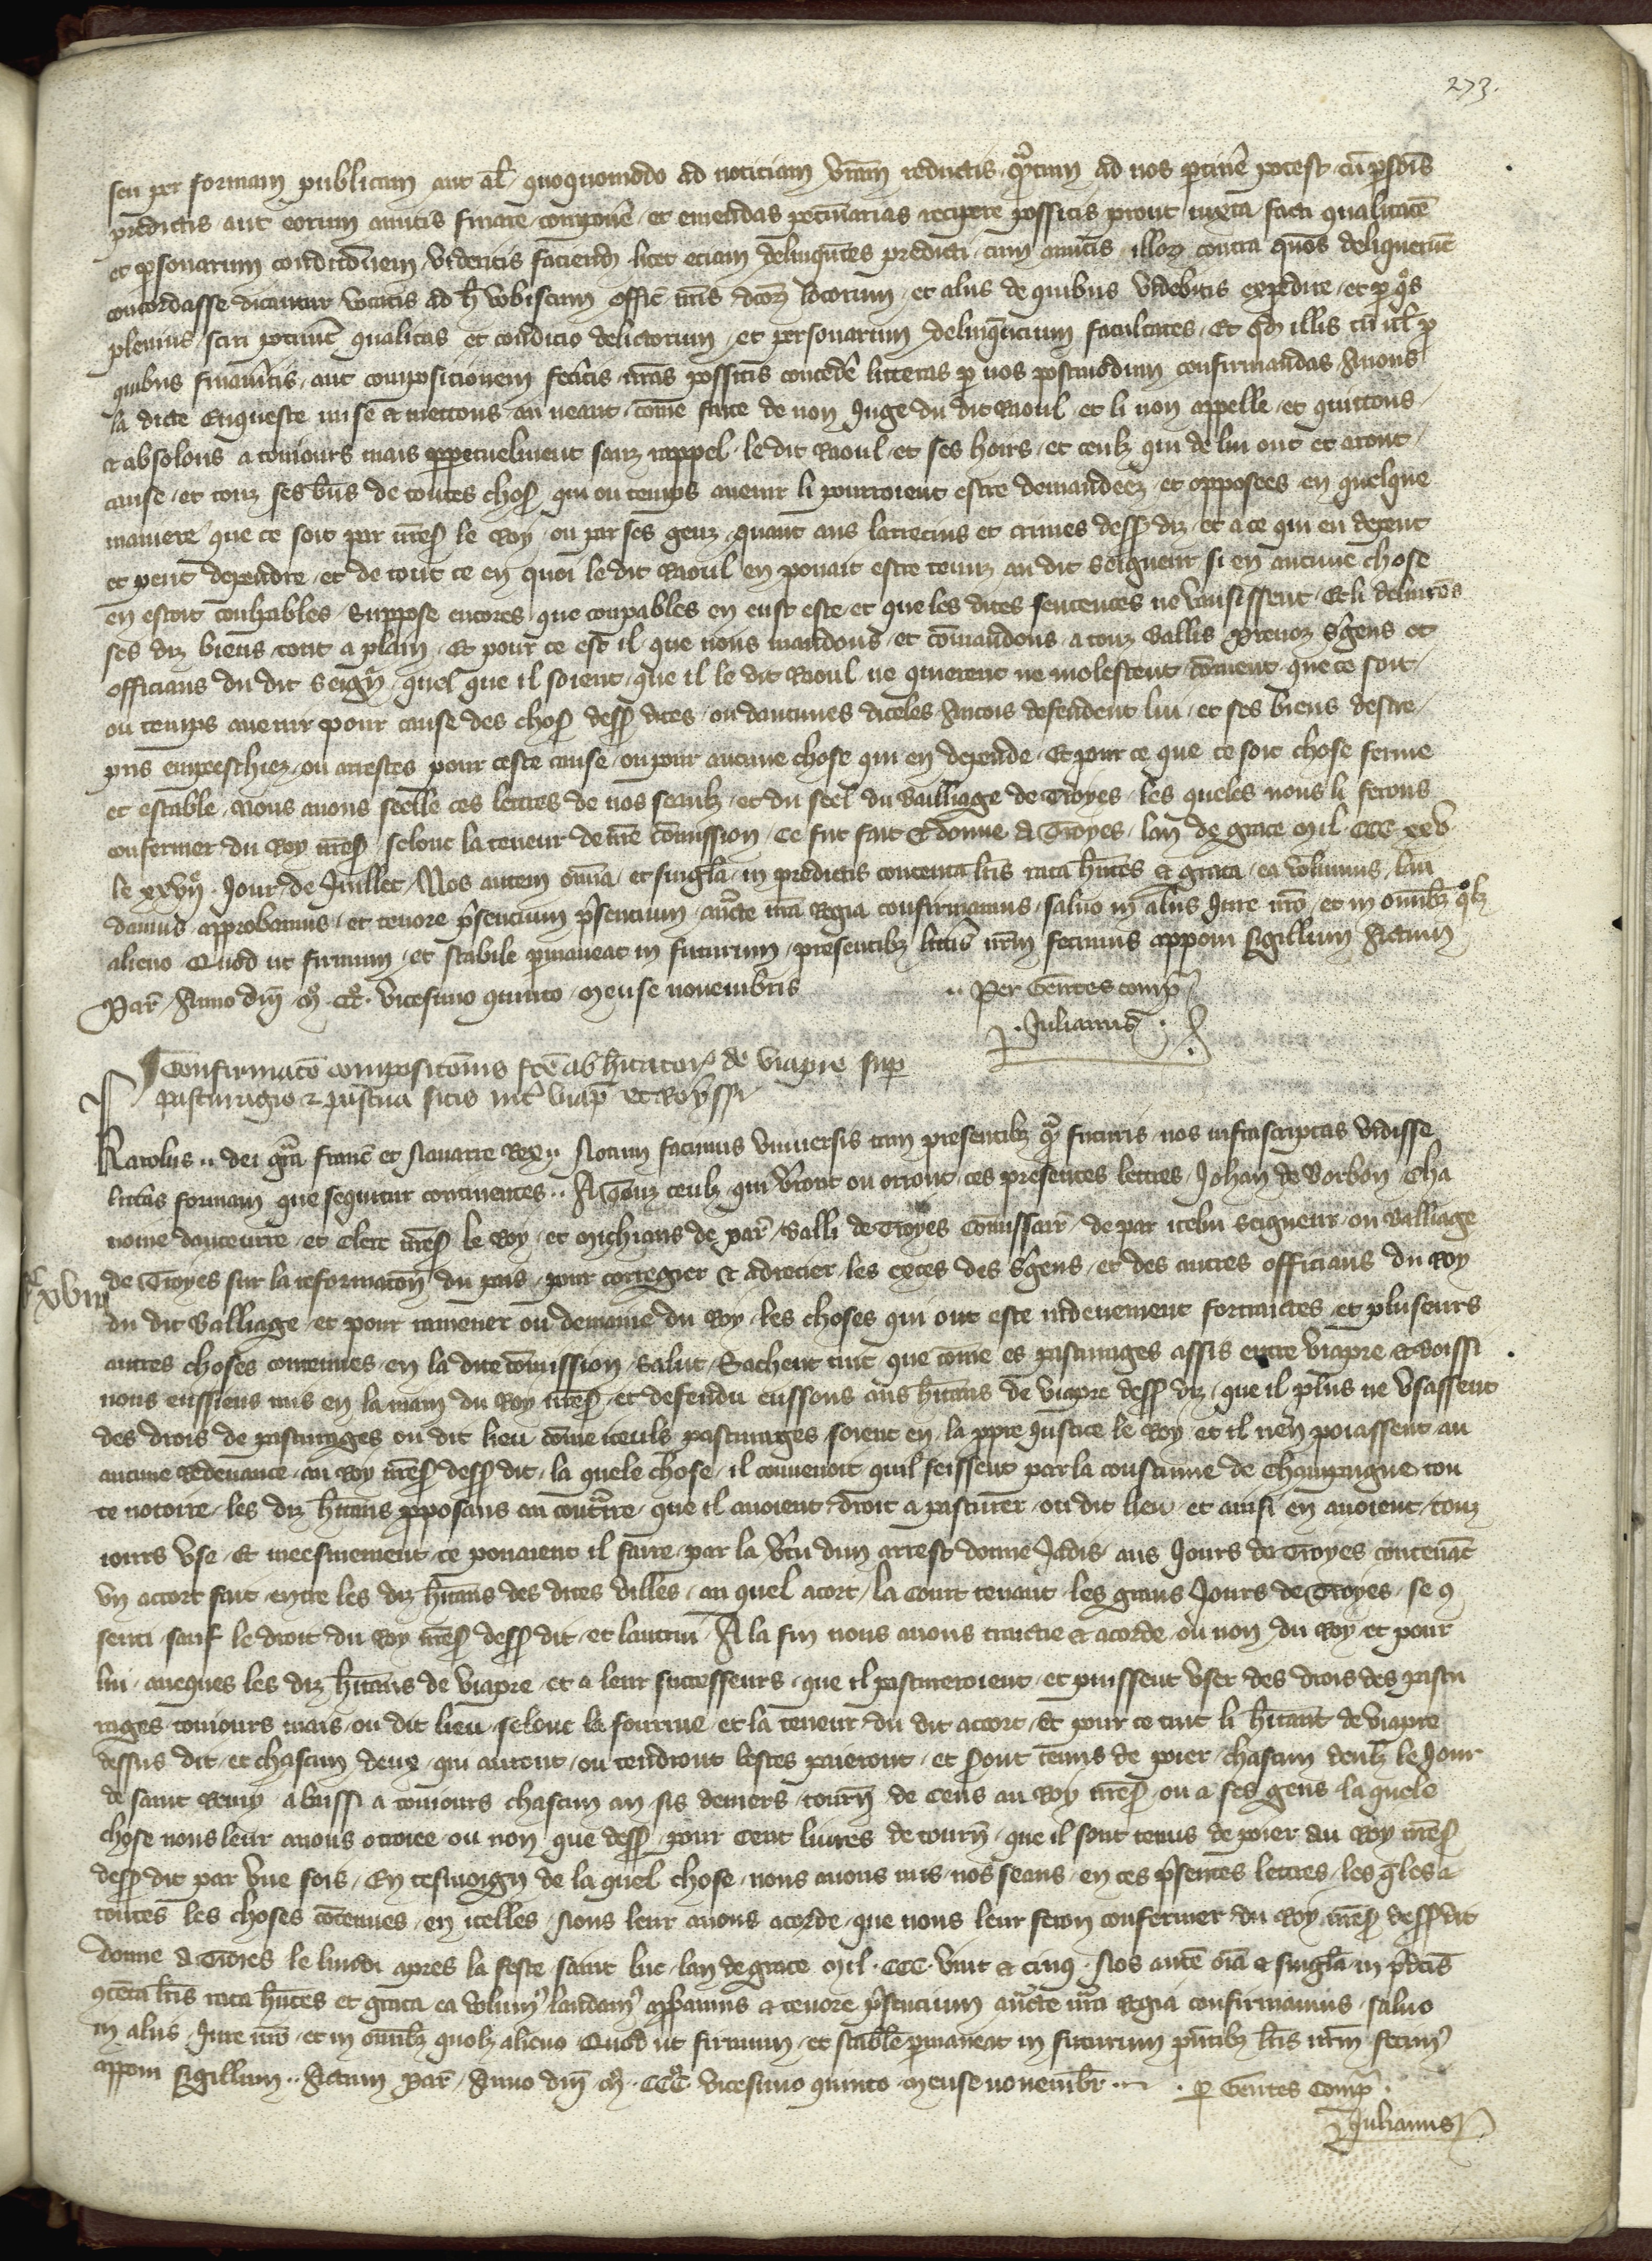 273.
seu per formam publicam aut al̃ quoquomodo ad noticiam vr̃am reductis qr̃tum ad nos ptiñe potest cũ p̱sõis
predictis aut eorum amicis finare compoñe et emendas pecuniarias recipere possitis prout iuxta facti qualitatẽ
et p̱sonarum condicionem videritis faciend licet eciam delinquẽtes predicti cum amicis illoꝝ contra quos deliqueruñt
concordasse dicantur vocatis ad h̃ vobiscum offic̃ nr̃is dc̃oꝝ locorum et aliis de quibus videbitis expedire et p̱ qͦs
plenius sciri poterint qualitas et condicio delictorum et personarum delinq̃ncium facultates Et qd̃ illis cũ ul̃ p̱
quibus finaveritis aut composicionem feceritis nr̃as possitis conced̃e litteras p̱ nos postmodum confirmandas Avons
la dicte Enqueste mise et mettons au neant cõme faite de non Juge du dit Raoul et li non appelle et quittons
et absolons a touiours mais p̱petuelment sanz rappel le dit Raoul et ses hoirs et ceulz qui de lui ont et aront
cause et touz ses biẽs de toutes choses qui ou temps avenir li pourroient estre demandeez et opposees en quelque
maniere que ce soit par nr̃es̃ le Roy ou par ses genz quant aus larrecins et crimes dess̃ diz et a ce qui en depent
et peut dependre et de tout ce en quoi le dit Raoul en pouait estre tenuz au dit Seigneur si en aucune chose
en estoit coulpables Suppose encores que coupables en eust este et que les dites sentences ne vausissent Et li delivrõs
ses diz biens tout a plain Et pour ce est il que nous mandons et cõmandons a touz Baillis Prevoz s̃gens et
officians du dit Seign̄r quel que il soient que il le dit Raoul ne querent ne molestent cõment que ce soit
ou temps avenir pour cause des chos̃ dess̃ dites ou daucunes diceles Aincois defendent lui et ses biens destre
pris empeschiez ou arrestes pour ceste cause ou pour aucune chose qui en depende Et pour ce que ce soit chose ferme
et estable Nous avons seelle ces lettres de nos seaulz et du seel du Bailliage de Troyes les queles nous li ferons
confermer du Roy nr̃es̃ selonc la teneur de nr̃e cõmission Ce fut fait et donne a Troyes lan de grace mil CCC xxv
le xxvijͤ Jour de Juillet Nos autem omñia et singl̃a in predictis contenta lr̃is rata hñtes et grata ea volumus lau
damus approbamus et tenore p̃sencium p̃sencium auct̃te nr̃a Regia confirmamus salvo in aliis Jure nr̃o et in omĩbꝫ qͦlꝫ
alieno Quod ut firmum et stabile p̱maneat in futurum presentibꝫ litt̃is nr̃m fecimus apponi sigillum Actum
Par̃ Anno dñi mͦ CCCͦ vicesimo quinto mense novembris .. Per Gentes comp̃
Julianus
Confirmac̃o composic̃onis fc̃e ab hĩtator̃ de Viapre sup̱
pasturagio et pastura sitis int̃ viap̃ et Royssi
Karolus .. dei gr̃a franc̃ et Navarre Rex .. Notum facimus Universis tam presentibꝫ qr̃ futuris nos infrascriptas vidisse
litt̃as formam que sequitur continentes .. A Touz ceulz qui vr̃ont ou orront ces presentes lettres Johan de Vorbon Cha
noine daucerre et Clerc nr̃es̃ le Roy et Michiaus de Par̃ Bailli de Troyes Cõmissair̃ de par icelui Seigneur ou Balliage
de Troyes sur la reformac̃on du pais pour corregier et adrecier les exces des s̃gens et des autres officians du Roy
xviij
du dit Balliage et pour ramener ou demaine du Roy les choses qui ont este indeuement fortraictes et pluseurs
autres choses contenues en la dite cõmission Salut Sachent tuit que cõme es pasturages assis entre Viapre et Boissi
nous eussiens mis en la main du Roy nr̃es̃ et defendu eussons aus hĩtans de Viapre dess̃ diz que il plus ne vsassent
des drois de pasturages ou dit lieu cõme iceuls pasturages soient en la p̱pre Justice le Roy et il nen poiassent au
aucune Redevance au Roy nr̃es̃ dess̃ dit la quele chose il convenoit quil feissent par la coustume de Champaigne tou
te notoire les diz hĩtans p̱posans au contr̃ire que il avoient droit a pasturer ou dit lieu et ainsi en avoient touz
iours vse Et meesmement ce pouaient il faire par la v̄tu dun arrest donne Jadis aus Jours de Troyes contenãt
vn accort fait entre les diz hĩtans des dites villes au quel acort la Court tenant les grans Jours de Troyes se ꝯ
senti sauf le droit du Roy nr̃es̃ dess̃ dit et lautrui A la fin nous avons traictie et acorde ou non du Roy et pour
lui aueques les diz hĩtans de Viapre et a leur successeurs que il pastureroient et puissent vser des drois des pastu
rages touiours mais ou dit lieu selonc la fourme et la teneur du dit accort Et pour ce tuit li hĩtant de Viapre
dessus dit et chascun deux qui auront ou tendront bestes paieront et seront tenus de poier chascun deulꝫ le Jour
de saint Remy a buissi a touiours chascun an sis deniers tourñ de cens au Roy nr̃es̃ ou a ses gens la quele
chose nous leur avons otroiee ou non que dess̃ pour Cent livres de tourñ que il sont tenus de poier au Roy nr̃es̃
dess̃ dit par vne fois En tesmoign de la quel chose nous avons mis nos seaus en ces p̃sentes lettres les q̃les a
toutes les choses cõtenues en icelles Nous leur avons acorde que nous leur feron confermer du Roy nr̃es̃ dess̃ dit
donne a Troies le lundi apres la feste saint luc lan de grace mil CCC vint et cinq Nos autẽ oĩa et singl̃a in p̃dc̃is
ꝯtẽta lr̃is rata hñtes et grata ea volumꝰ laudamꝰ app̱bamus et tenore p̃sencium auct̃te nr̃a Regia confirmamus salvo
in aliis Jure nr̃o et in omĩbꝫ quolꝫ alieno Quod ut firmum et stabile p̱maneat in futurum p̃ntibꝫ lr̃is nr̃m fecimꝰ
apponi sigillum .. Actum Par̃ Anno dñi mͦ CCCͦ vicesimo quinto mense novembr̃ .. p̱ Gentes Comp̃
Julianus